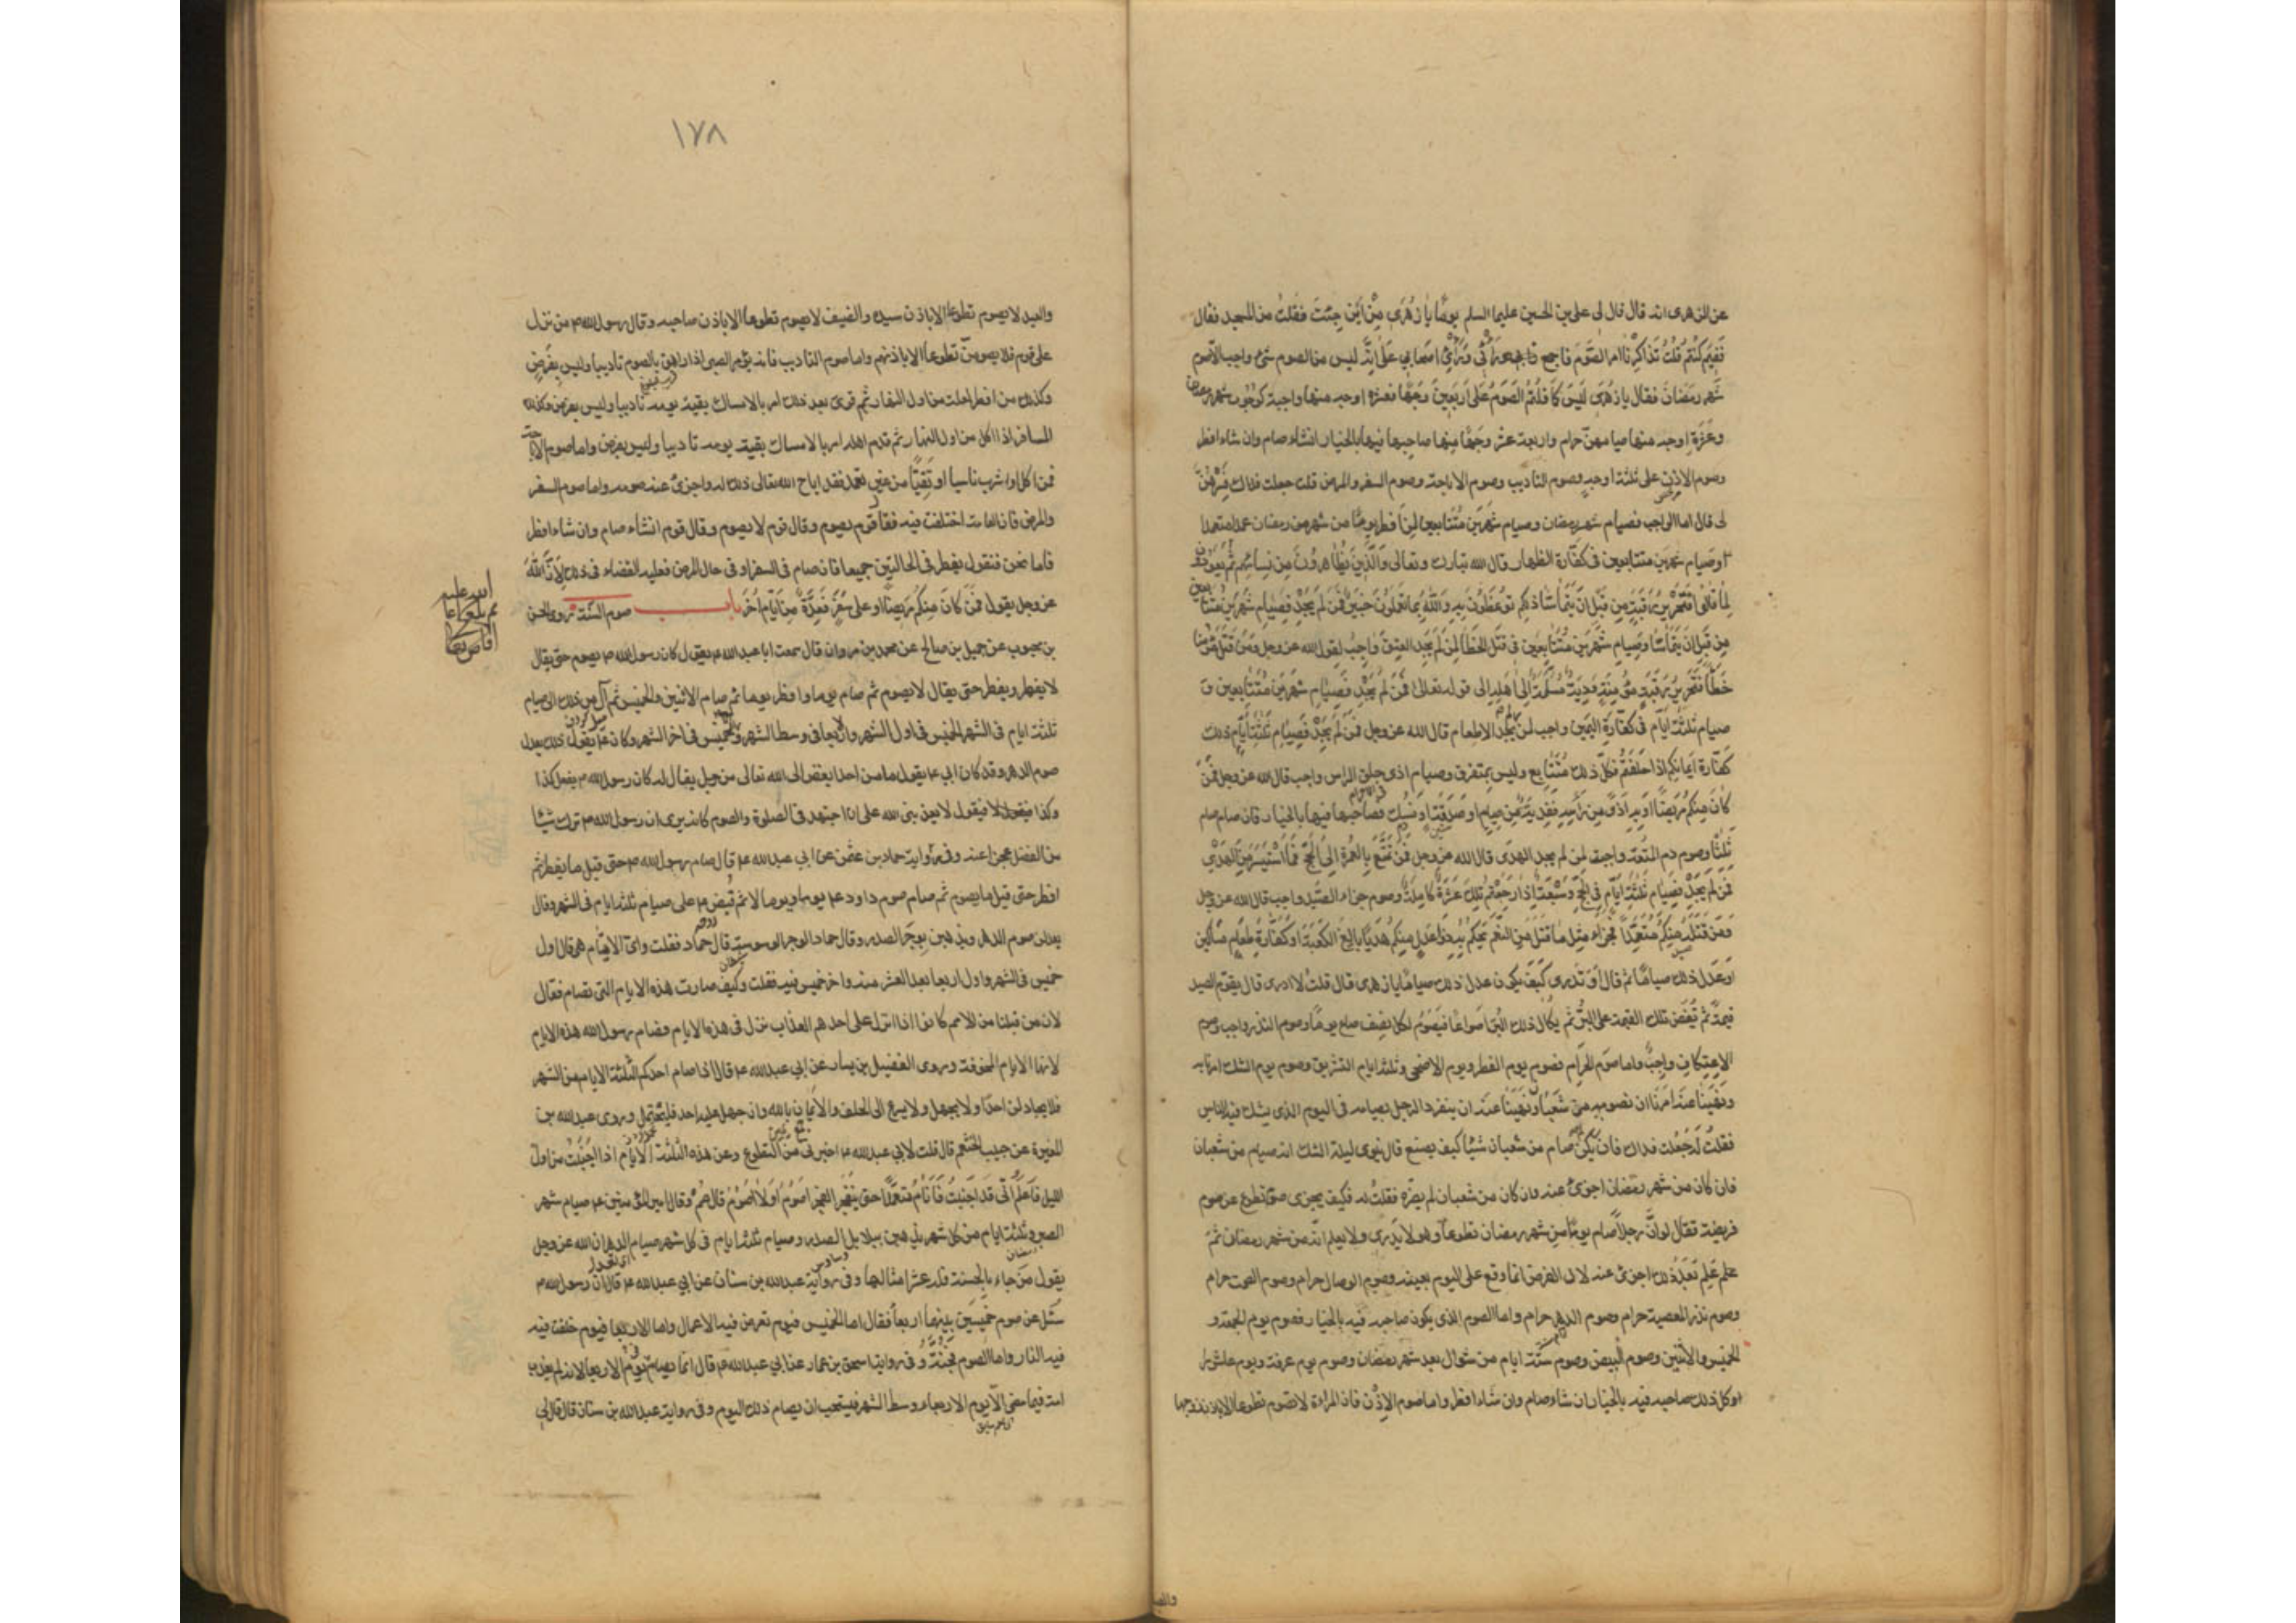 عن الزهرى انه قال قال لى على بن الحسين عليهما السلم يومًا يا زُهرى مِنْ اَينَ جِئتَ فقلتُ من المسجد فقال
فَفيمَ كنتم قُلتُ تَذاكَرْنا امر الصَّوم فاجمع رأيى ورأىُ اصحابى عَلى انّه ليس من الصوم شئ واجب الا صوم
شَهر رَمَضانَ فقال يا زهرى لَيسَ كما قلتُم الصَّومُ عَلى اَربَعينَ وَجهًا فعشرة اوجه منها واجبة كوجوب شهر رمضان
وعَشَرة اوجه منها صيامهنّ حرام واربعة عشر وَجهًا منها صاحبها فيها بالخيار ان شاء صام وان شاء افطر
وصوم الاذن على ثلثة اوجه وصوم التاديب وصوم الاباحة وصوم السفر والمرض قلت جعلت فداك فَسِّرهُنَّ
لى قال اما الواجب فصيام شهر رمضان وصيام شَهرَين مُتتابعين لِمَن اَفطر يومًا من شهر رمضان عمدا متعمدا
وصيام شهرين متتابعين فى كفّارة الظهار قال الله تبارك وتعالى وَالّذينَ يُظاهِرونَ مِن نِسائِهِم ثُمَّ يَعودونَ
لِما قالوا فَتَحريرُ رَقَبَةٍ مِن قَبلِ اَنْ يَتَماسّا ذلكم توعَظونَ بِهِ وَاللهُ بِما تَعمَلونَ خَبيرٌ فَمَن لَم يَجِدْ فَصِيامُ شَهرَين مُتَتابعين
مِن قَبلِ ان يَتَماسّا وصيام شهرين متتابعين فى قتل الخطأ لِمَن لَم يَجِد العِتقَ واجِبٌ لقول الله عز وجل وَمَن قَتَلَ مُؤمنا
خَطَأً فَتَحريرُ رَقَبَةٍ مُؤمِنَةٍ وَدِيَةٌ مُسَلَّمَةٌ اِلى اَهلِهِ الى قوله تعالى فَمَن لَم يَجِدْ فَصِيامُ شهرَين مُتَتابِعَينِ و
صيام ثلثة ايّام فى كفّارة اليمين واجب لمن لم يجد الاطعام قال الله عز وجل فَمَن لَم يَجِدْ فَصِيامُ ثَلثَةِ اَيّامٍ ذلك
كفّارة اَيمانِكُم اذا حلفتم فكلّ ذلك مُتَتابع وليس بمتفرق وصيام اذى حلق الراس واجب قال الله عز وجل فَمَن
كانَ مِنكُم مَريضًا اَو بِهِ اَذًى مِن رَأسِهِ فَفِديَةٌ مِن صِيامٍ او صَدَقَةٍ او نُسُكٍ فصاحبها فيها بالخيار فان صام صام
ثَلثًا وصوم دم المتعة واجب لمن لم يجد الهدى قال الله عز وجل فَمَن تَمَتَّعَ بِالعُمرَةِ اِلى الحَجِّ فَما استَيسَرَ مِنَ الهَدْى
فَمَن لَم يَجِدْ فَصِيامُ ثَلثَةِ اَيّامٍ فى الحَجِّ وَسَبعَةٍ اِذا رَجَعتُم تِلكَ عَشَرَةٌ كامِلَةٌ وصوم جزاء الصّيد واجب قال الله عز وجل
وَمَن قَتَلَهُ مِنكُم مُتَعَمِّدًا فَجَزاءٌ مِثلُ ما قَتَلَ مِنَ النَّعَمِ يَحكُمُ بِهِ ذَوا عَدلٍ مِنكُم هَديًا بالِغَ الكَعبَةِ اَو كَفّارَةٌ طَعامُ مَساكين
اَو عَدلُ ذلك صيامًا ثم قال اَوَ تَدرى كَيفَ يكون عدل ذلك صيامًا يا زهرى قال قلت لا ادرى قال يقوّم الصيد
قيمةً ثم تُفَضّ تلك القيمة على البُرّ ثم يُكال ذلك البُرّ اصواعًا فيَصُوم لكل نِصف صاع يومًا وصوم النذر واجب وصوم
الاعتكاف واجب واما صوم الحرام فصوم يوم الفطر ويوم الاضحى وثلثة ايام التشريق وصوم يوم الشك امرنا به
ونُهينا عنه اُمِرنا ان نصومه من شعبان ونُهينا عنه ان ينفرد الرجل بصيامه فى اليوم الذى يشك فيه الناس
فقلتُ له جُعلت فداك فان لم يكن صام من شعبان شيئًا كيف يصنع قال ينوى ليلة الشك انه صيام من شعبان
فان كان من شهر رمضان اجزئ عنه وان كان من شعبان لم يضرّه فقلتُ له فكيف يجزى صوم تطوع عن صوم
فريضة فقال لو اَنَّ رجلًا صام يومًا من شهر رمضان تطوعًا وهو لا يَدرى ولا يعلم انّه من شهر رمضان ثمّ
علم بعد ذلك اجزئ عنه لان الفرض انما وقع على اليوم بعينه وصوم الوصال حرام وصوم الصمت حرام
وصوم نذر المعصية حرام وصوم الدهر حرام واما الصوم الذى يكون صاحبه فيه بالخيار فصوم يوم الجمعة و
الخميس والاثنين وصوم البيض وصوم ستّة ايام من شوال بعد شهر رمضان وصوم يوم عرفة ويوم عاشورا
وكل ذلك صاحبه فيه بالخيار ان شاء صام وان شاء افطر واما صوم الاِذن فان المراة لا تصوم تطوعا الا باذن زوجها
١٧٨
والعبد لا يصوم تطوعا الا باذن سيده والضيف لا يصوم تطوعا الا باذن صاحبه وقال رسول الله ص من نزل
على قوم فلا يصومنّ تطوعًا الا باذنهم واما صوم التاديب فانه يؤمر الصبى اذا راهق بالصوم تأديبا وليس بفرضٍ
وكذلك من افطر لعلة من اول النهار ثم قوى بعد ذلك امر بالامساك بقية يومه تاديبا وليس بفرض وكذلك
المسافر اذا اكل من اول النهار ثم قدم اهله امر بالامساك بقية يومه تاديبا وليس بفرض واما صوم الاباحة
فمن اكل او شرب ناسيا او تَقَيَّأَ من غير تعمد فقد اباح الله تعالى ذلك له واجزئ عنه صومه واما صوم السفر
والمرض فان العامة اختلفت فيه فقال قوم يصوم وقال قوم لا يصوم وقال قوم ان شاء صام وان شاء افطر
فاما نحن فنقول يفطر فى الحالتين جميعا فان صام فى السفر او فى حال المرض فعليه القضاء فى ذلك لاَنَّ اللهَ
عز وجل يقول فَمَن كانَ مِنكُم مَريضًا او على سَفَرٍ فَعِدَّةٌ مِن اَيّامٍ اُخَر باب صوم السّنّة روى الحسن
بن محبوب عن جميل بن صالح عن محمد بن مروان قال سمعت ابا عبد الله ع يقول كان رسول الله ص يصوم حتى يقال
لا يفطر ويفطر حتى يقال لا يصوم ثم صام يوما وافطر يوما ثم صام الاثنين والخميس ثم آل من ذلك الى صيام
ثلثة ايام فى الشهر الخميس فى اول الشهر واربعا فى وسط الشهر والخميس فى اخر الشهر وكان ع يقول ذلك يعدل
صوم الدهر وقد كان ابى ع يقول ما من احد ابغض الى الله تعالى من رجل يقال له كان رسول الله ص يفعل كذا
وكذا فيقول لا يعذبنى الله على ان اجتهد فى الصلوة والصوم كانه يرى ان رسول الله ص ترك شيئًا
من الفضل عجزا عنه وفى رواية حماد بن عثمن عن ابى عبد الله ع قال صام رسول الله ص حتى قيل ما يفطر ثم
افطر حتى قيل ما يصوم ثم صام صوم داود ع يوما ويوما لا ثم قُبض ص على صيام ثلثة ايام فى الشهر وقال
يعدلن صوم الدهر ويذهبن بوحر الصدر وقال حماد الوحر الوسوسة قال حماد فقلت واىّ الايام هى قال اول
خميس فى الشهر واول اربعا بعد العشر منه واخر خميس فيه فقلت وكيف صارت هذه الايام التى تصام فقال
لان من قبلنا من الامم كانوا اذا نزل على احدهم العذاب نزل فى هذه الايام فصام رسول الله هذه الايام
لانها الايام المخوفة وروى الفضيل بن يسار عن ابى عبد الله ع قال اذا صام احدكم الثلثة الايام من الشهر
فلا يجادلن احدًا ولا يجهل ولا يسرع الى الحلف والايمان بالله وان جهل عليه احد فليتحمل وروى عبد الله بن
المغيرة عن حبيب الخثعمى قال قلت لابى عبد الله ع اخبرنى عن التطوع وعن هذه الثلثة الايام اذا اجنبت من اول
الليل فاَعلَمُ اَنّى قد اجنَبتُ فَاَنامُ متعمّدًا حتى ينفجر الفجر اَصُومُ اَو لا اَصُوم قال صُم وقال امير المؤمنين ع صيام شهر
الصبر وثلثة ايام من كل شهر يذهبن ببلابل الصدر وصيام ثلثة ايام فى كل شهر صيام الدهر ان الله عز وجل
يقول من جاء بالحسنة فله عشر امثالها وفى رواية عبد الله بن سنان عن ابى عبد الله ع قال انّ رسول الله ص
سُئل عن صوم خميسَين بينهما اربعا فقال اما الخميس فيوم تعرض فيه الاعمال واما الاربعا فيوم خلقت فيه
فيه النار واما الصوم فجُنّة وفى رواية اسحق بن عمار عن ابى عبد الله ع قال انما يصام يوم الاربعا لانه لم يعذب
امة فيما مضى الا يوم الاربعاء وسط الشهر فيستحب ان يصام ذلك اليوم وفى رواية عبد الله بن سنان قال قال لى